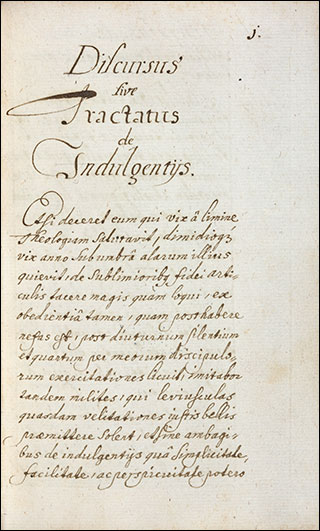 1.
Discursus
sive
Tractatus
de
Indulgentijs.
Etsi deceret eum qui vix â limine
Theologiam Salutavit, dimidioq́;
vix anno Sub umbrâ alarum illius
quievit, de Sublimioribq fidei arti-
culis tacere magis quàm loqui, ex
obedientiâ tamen, quam posthabere
nefas est, post diuturnum silentium
et quartum per meorum discipulo-
rum exercitationes licuit, imitabor
tandem milites, qui leviusculas
quasdam velitationes justis bellis
præmittere Solent, et sine ambagi-
bus de indulgentijs quâ simplicitate,
facilitate, ac perspicuitate potero